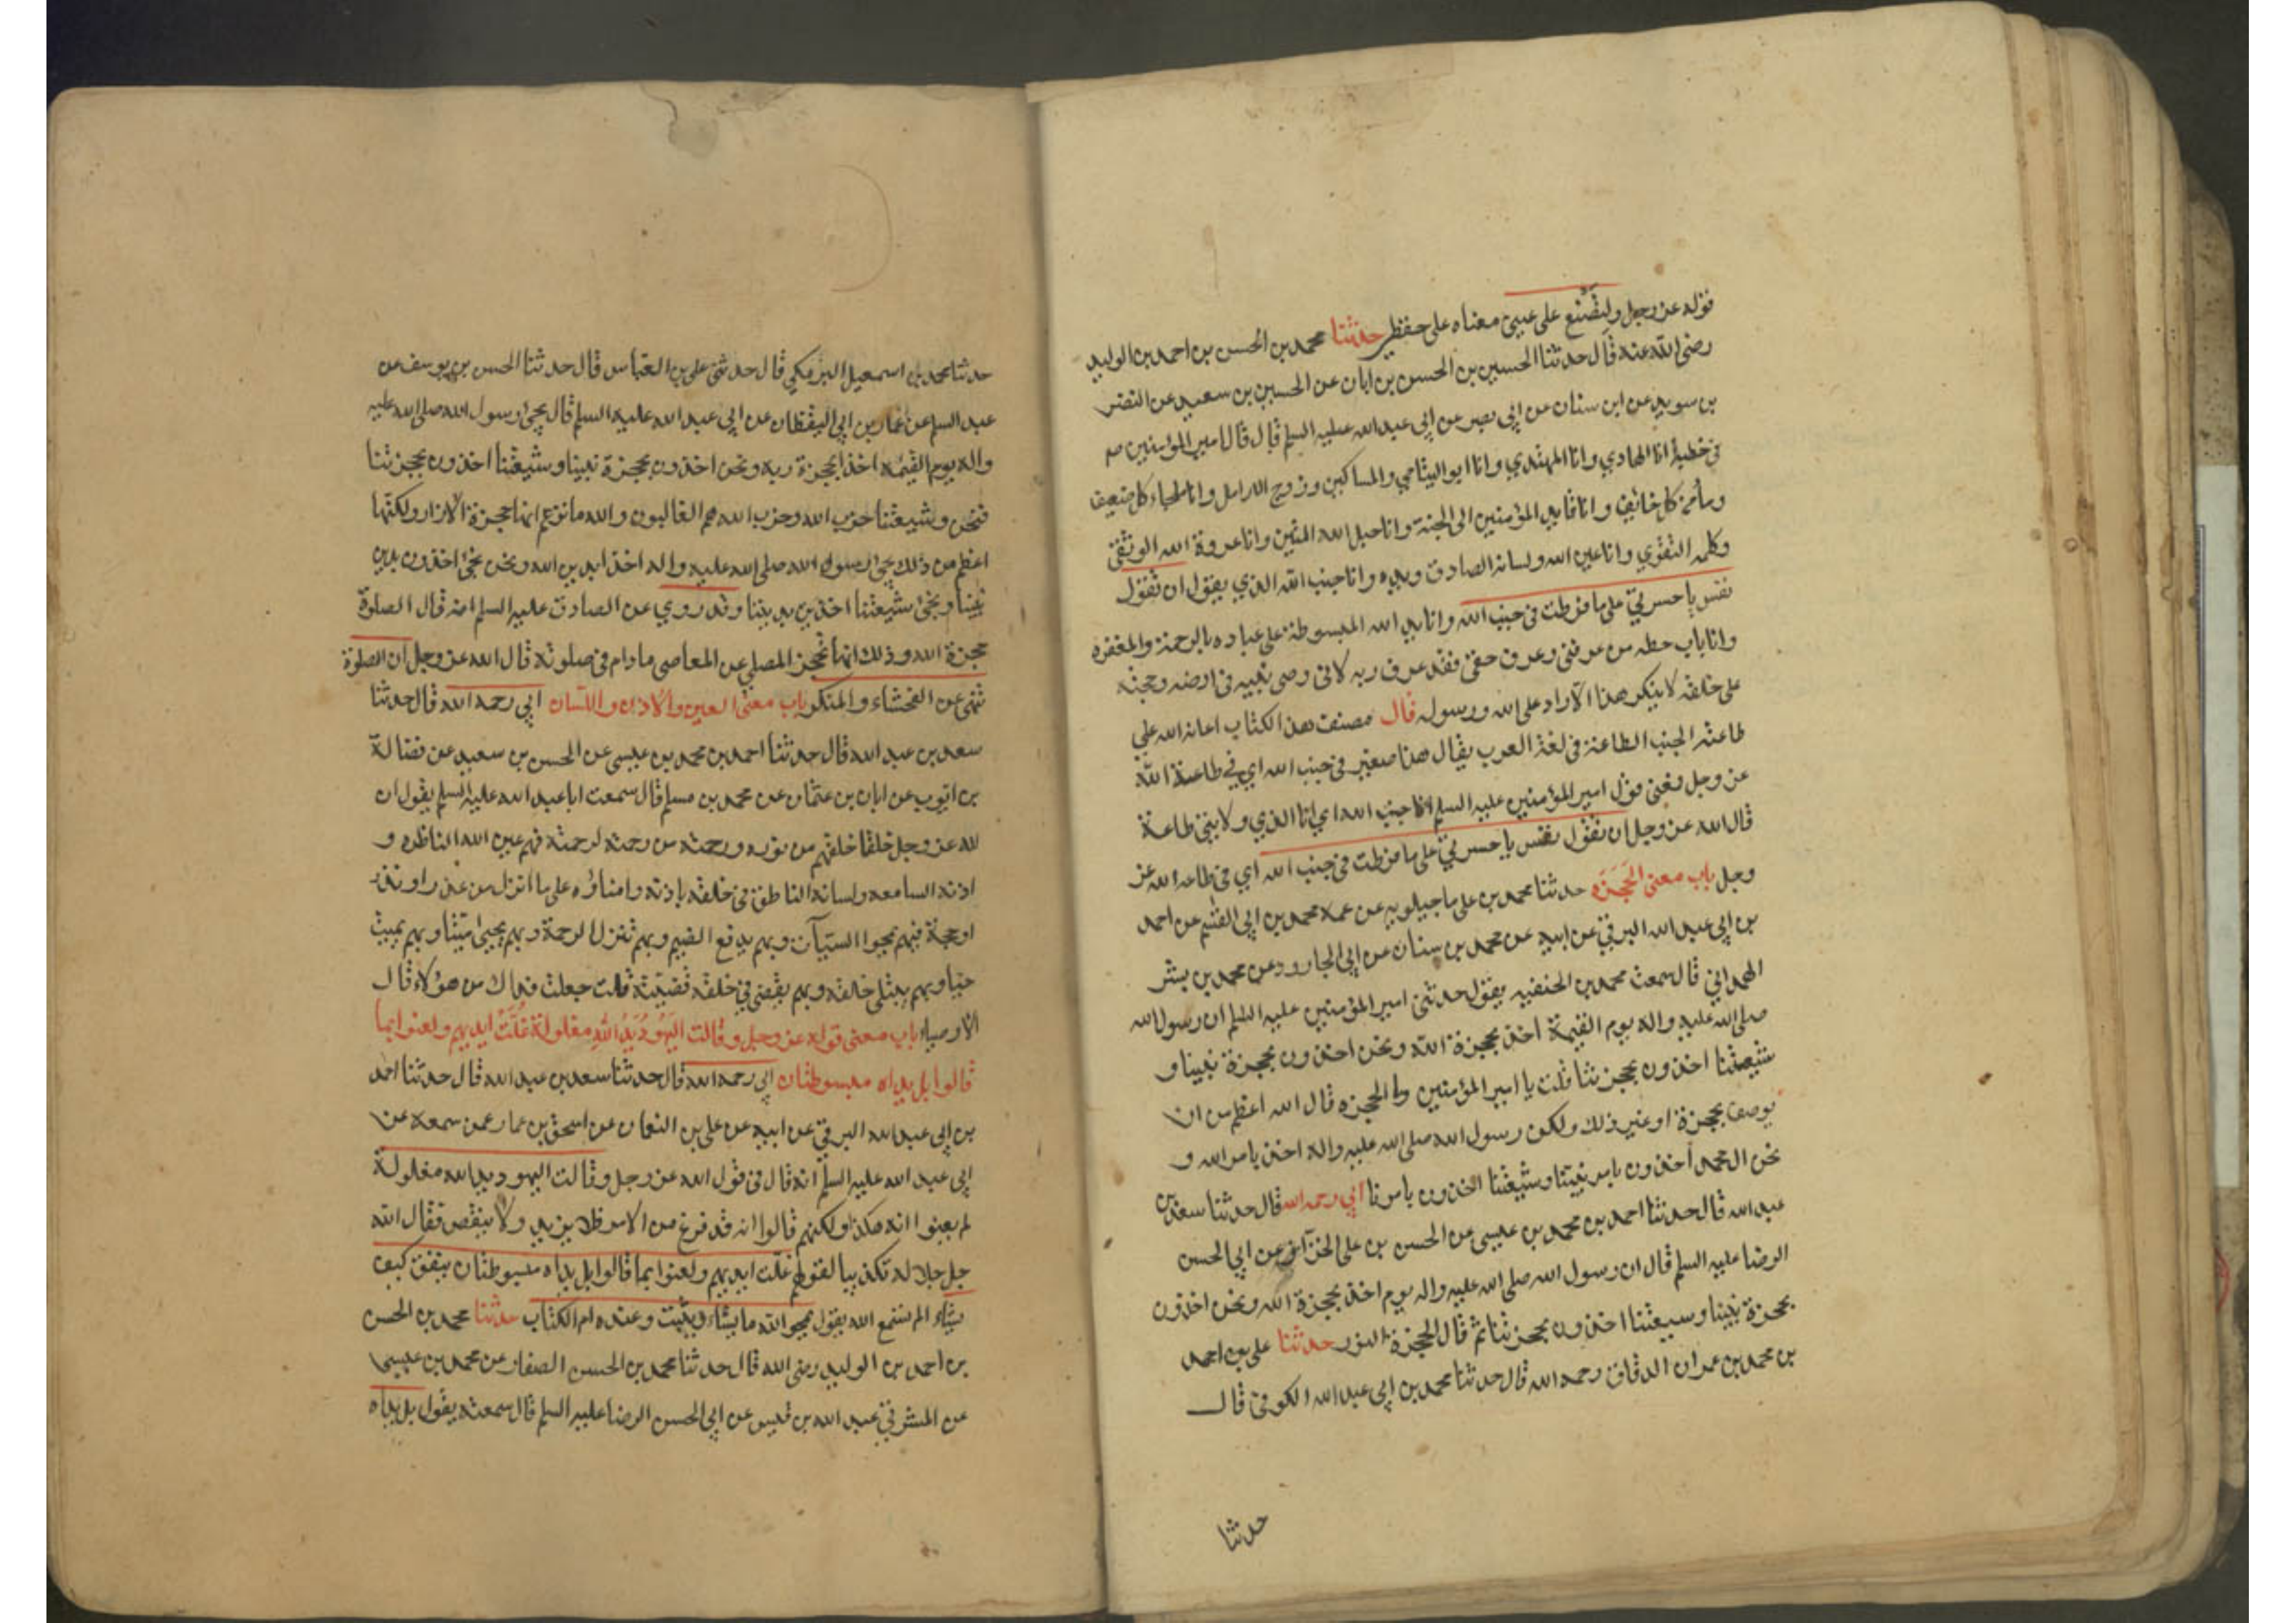 قوله عز وجل ولتصنع على عيني معناه على حفظي حدثنا محمد بن الحسن بن احمد بن الوليد
رضى الله عنه قال حدثنا الحسين بن الحسن بن ابان عن الحسين بن سعيد عن النضر
بن سويد عن ابن سنان عن ابي بصير عن ابي عبد الله عليه السلم قال قال امير المؤمنين ص
في خطبة انا الهادي وانا المهتدي وانا ابو اليتامي والمساكين وزوج الارامل وانا ملجاء كل ضعيف
ومأمن كل خائف وانا قايد المؤمنين الى الجنة وانا حبل الله المتين وانا عروة الله الوثقى
وكلمه التقوي وانا عين الله ولسانه الصادق ويده وانا جنب الله الذي يقول ان تقول
نفس يا حسرتي على ما فرطت في جنب الله وانا يد الله المبسوطة على عباده بالرحمة والمغفره
وانا باب حطه من عرفني وعرف حقي فقد عرف ربه لاني وصي نبيه في ارضه وحجته
على خلقه لا ينكر هذا الا راد على الله ورسوله قال مصنف هذا الكتاب اعانه الله علي
طاعته الجنب الطاعة في لغة العرب يقال هذا صغير في جنب الله اي في طاعة الله
عز وجل فمعنى قول امير المؤمنين عليه السلم انا جنب الله اي انا الذي ولايتي طاعة
قال الله عز وجل ان تقول نفس يا حسرتي على ما فرطت في جنب الله اي في طاعه الله عز
وجل باب معنى الحجزه حدثنا محمد بن على ماجيلويه عن عمه محمد بن ابي القسم عن احمد
بن ابي عبد الله البرقي عن ابيه عن محمد بن سنان عن ابي الجارود عن محمد بن بشر
الهمداني قال سمعت محمد بن الحنفيه يقول حدثني امير المؤمنين عليه السلم ان رسول الله
صلى الله عليه واله يوم القيمة اخذ بحجزة الله ونحن اخذون بحجزة نبينا و
شيعتنا اخذون بحجزتنا قلت يا امير المؤمنين وما الحجزه قال الله اعظم من ان
يوصف بحجزة او غير ذلك ولكن رسول الله صلى الله عليه واله اخذ بامر الله و
نحن ال محمد اخذون بامر نبينا وشيعتنا اخذون بامرنا ابي رحمه الله قال حدثنا سعد بن
عبد الله قال حدثنا احمد بن محمد بن عيسى عن الحسن بن على الخزاز عن ابي الحسن
الرضا عليه السلم قال ان رسول الله صلى الله عليه واله يوم اخذ بحجزة الله ونحن اخذون
بحجزة نبينا وسيعتنا اخذون بحجزتنا ثم قال الحجزة النور حدثنا على بن احمد
بن محمد بن عمران الدقاق رحمه الله قال حدثنا محمد بن ابي عبد الله الكوفي قال
حدثنا
حدثنا محمد بن اسمعيل البرمكي قال حدثني على بن العباس قال حدثنا الحسن بن يوسف عن
عبد السلم عن عمار بن ابي اليقظان عن ابي عبد الله عليه السلم قال يجئ رسول الله صلى الله عليه
واله يوم القيمه اخذا بحجزة ربه ونحن اخذون بحجزة نبينا وشيعتنا اخذون بحجزتنا
فنحن وشيعتنا حزب الله وحزب الله هم الغالبون والله ما نزعم انها حجزة الازار ولكنها
اعظم من ذلك يجئ رسول الله صلى الله عليه واله اخذا بدين الله ونحن نجئ اخذون بدين
نبينا ونجئ شيعتنا اخذين بديننا وقد روي عن الصادق عليه السلم انه قال الصلوة
حجزة الله وذلك انها تحجز المصلي عن المعاصي ما دام في صلوته قال الله عز وجل ان الصلوة
تنهى عن الفحشاء والمنكر باب معنى العين والاذن واللسان ابي رحمه الله قال حدثنا
سعد بن عبد الله قال حدثنا احمد بن محمد بن عيسى عن الحسن بن سعيد عن فضالة
بن ايوب عن ابان بن عثمان عن محمد بن مسلم قال سمعت ابا عبد الله عليه السلم يقول ان
لله عز وجل خلقا خلقهم من نوره ورحمته من رحمته لرحمته فهم عين الله الناظره و
اذنه السامعه ولسانه الناطق في خلقه باذنه وامناؤه على ما انزل من عذر او نذر
او حجة فبهم يمحوا السيآت وبهم يدفع الضيم وبهم تنزل الرحمة وبهم يحيى ميتا وبهم يميت
حيا وبهم يبتلى خلقه وبهم يقضي في خلقه قضيته قلت جعلت فداك من هؤلاء قال
الاوصياء باب معنى قوله عز وجل وقالت اليهود يد الله مغلولة غلت ايديهم ولعنوا بما
قالوا بل يداه مبسوطتان ابي رحمه الله قال حدثنا سعد بن عبد الله قال حدثنا احمد
بن ابي عبد الله البرقي عن ابيه عن على بن النعمان عن اسحق بن عمار عمن سمعه عن
ابي عبد الله عليه السلم انه قال في قول الله عز وجل وقالت اليهود يد الله مغلولة
لم يعنوا انه هكذا ولكنهم قالوا انه قد فرغ من الامر فلا يزيد ولا ينقص فقال الله
جل جلاله تكذيبا لقولهم غلت ايديهم ولعنوا بما قالوا بل يداه مبسوطتان ينفق كيف
يشاء الم تسمع الله يقول يمحو الله ما يشاء ويثبت وعنده ام الكتاب حدثنا محمد بن الحسن
بن احمد بن الوليد رضى الله قال حدثنا محمد بن الحسن الصفار عن محمد بن عيسى
عن المشرقي عبد الله بن قيس عن ابي الحسن الرضا عليه السلم قال سمعته يقول بل يداه